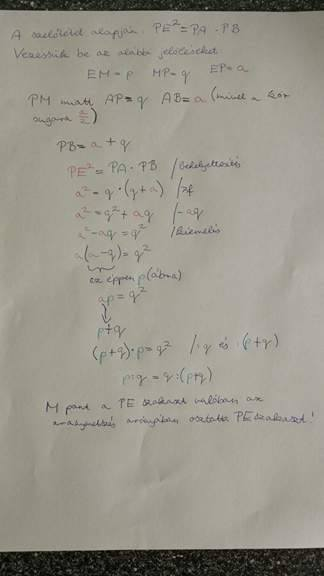 A szelőtétel alapján: PE² = PA · PB
Vezessük be az alábbi jelöléseket
EM = p MP = q EP = a
PM miatt AP = q AB = a (mivel a kör
sugara a/2)
PB = a + q
PE² = PA · PB / behelyettesítés
a² = q · (q + a) / zf
a² = q² + aq / -aq
a² - aq = q² / kiemelés
a(a - q) = q²
ez éppen p (ábra)
ap = q²
p + q
(p + q) · p = q² / : q és : (p + q)
p : q = q : (p + q)
M pont a PE szakaszt valóban az
aranymetszés arányában osztotta PE szakaszt!